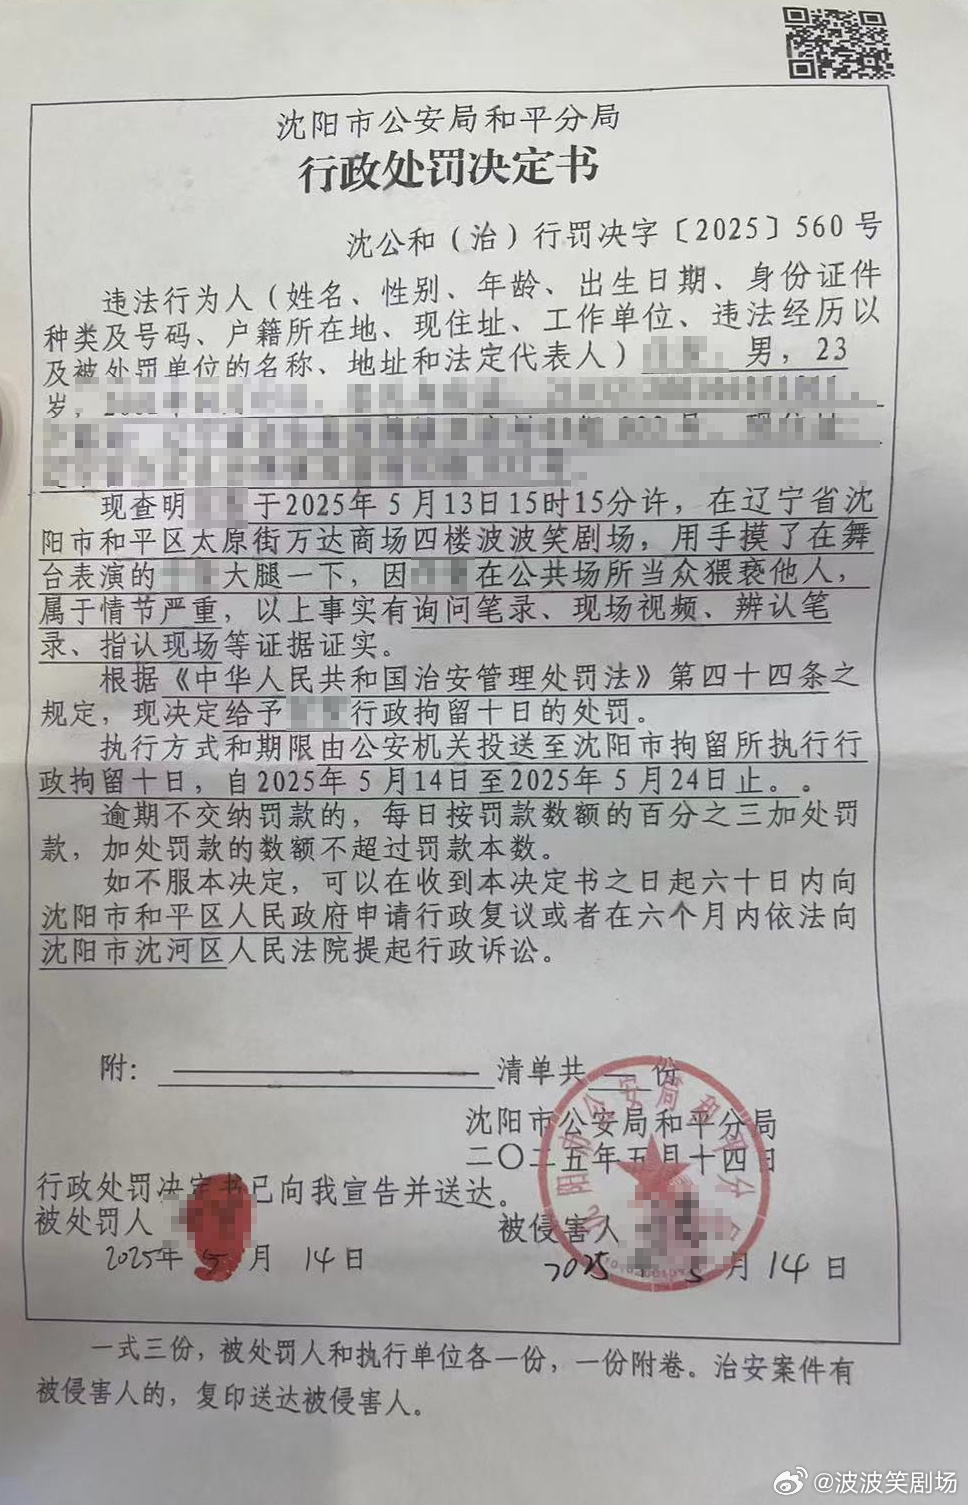 沈阳市公安局和平分局
行政处罚决定书
沈公和（治）行罚决字〔2025〕560号
违法行为人（姓名、性别、年龄、出生日期、身份证件
种类及号码、户籍所在地、现住址、工作单位、违法经历以
及被处罚单位的名称、地址和法定代表人） ，男，23
岁，
号，现住址
号。
现查明 于2025年5月13日15时15分许，在辽宁省沈
阳市和平区太原街万达商场四楼波波笑剧场，用手摸了在舞
台表演的 大腿一下，因 在公共场所当众猥亵他人，
属于情节严重，以上事实有询问笔录、现场视频、辨认笔
录、指认现场等证据证实。
根据《中华人民共和国治安管理处罚法》第四十四条之
规定，现决定给予 行政拘留十日的处罚。
执行方式和期限由公安机关投送至沈阳市拘留所执行行
政拘留十日，自2025年5月14日至2025年5月24日止。。
逾期不交纳罚款的，每日按罚款数额的百分之三加处罚
款，加处罚款的数额不超过罚款本数。
如不服本决定，可以在收到本决定书之日起六十日内向
沈阳市和平区人民政府申请行政复议或者在六个月内依法向
沈阳市沈河区人民法院提起行政诉讼。
附： 清单共 份
沈阳市公安局和平分局
二〇二五年五月十四日
行政处罚决定书已向我宣告并送达。
被处罚人
2025年5月14日
被侵害人
2025 5月14日
一式三份，被处罚人和执行单位各一份，一份附卷。治安案件有
被侵害人的，复印送达被侵害人。
@波波笑剧场